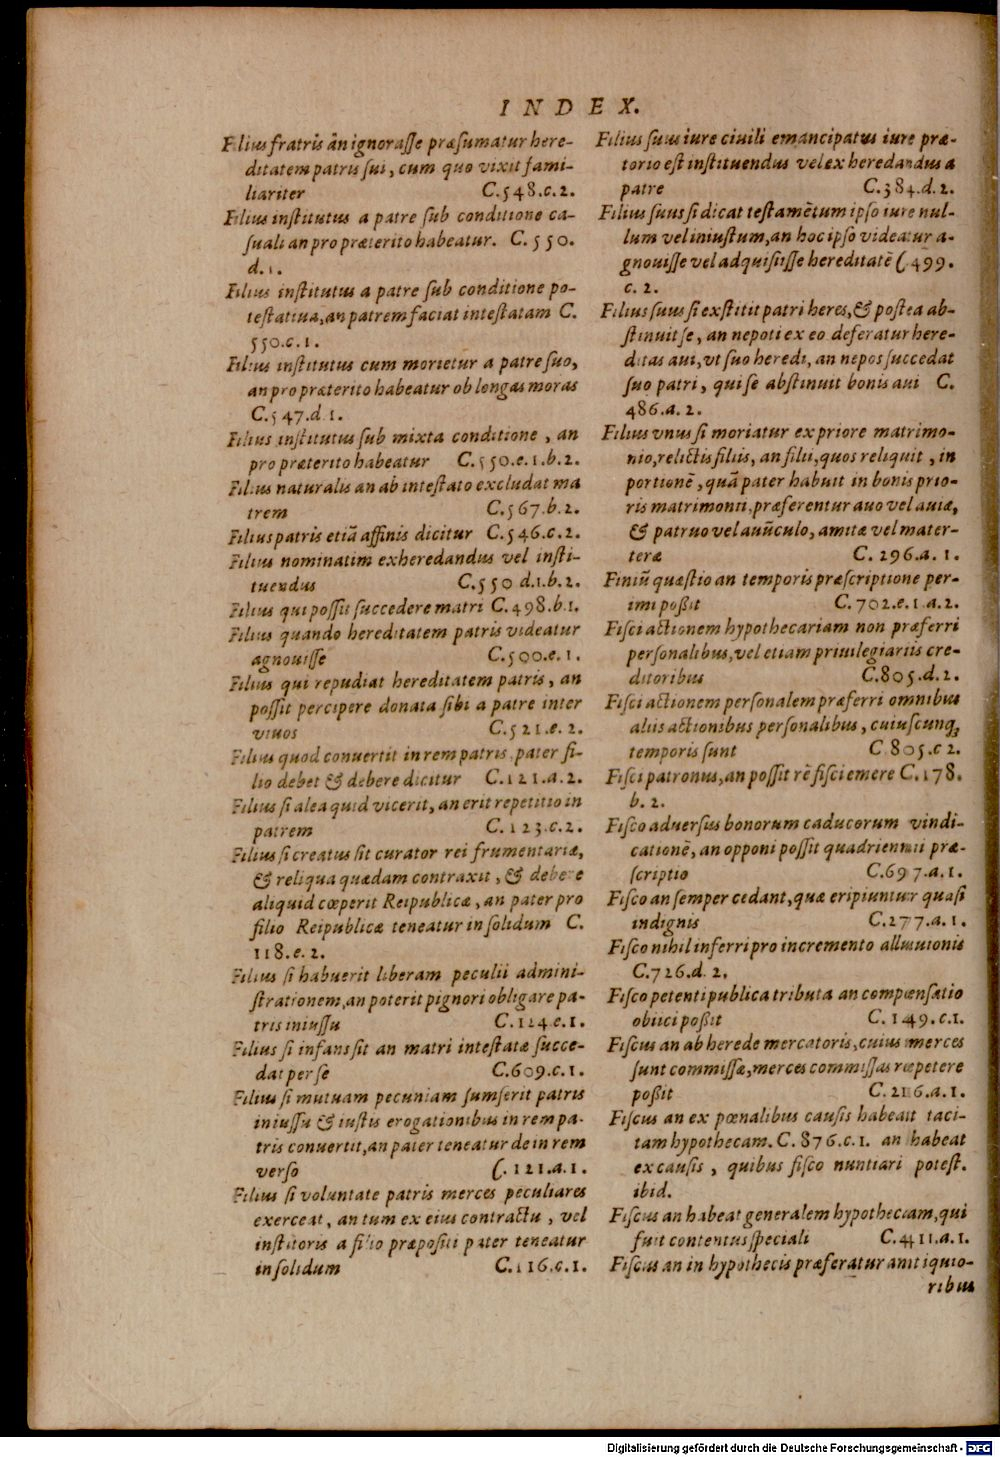 INDEX.
Filius fratris an ignorasse præsumatur here-
ditatem patris sui, cum quo vixit fami-
liariter C.548.c.2.
Filius institutus a patre sub conditione ca-
suali an pro præterito habeatur. C.550.
d.1.
Filius institutus a patre sub conditione po-
testatiua, an patrem faciat intestatam C.
550.c.1.
Filius institutus cum morietur a patre suo,
an pro præterito habeatur ob longas moras
C.547.d.1.
Filius institutus sub mixta conditione, an
pro præterito habeatur C.550.e.1.b.2.
Filius naturalis an ab intestato excludat ma
trem C.567.b.2.
Filius patris etiã affinis dicitur C.546.c.2.
Filius nominatim exheredandus vel insti-
tuendus C.550 d.1.b.2.
Filius qui possit succedere matri C.498.b.1.
Filius quando hereditatem patris videatur
agnouisse C.500.e.1.
Filius qui repudiat hereditatem patris, an
possit percipere donata sibi a patre inter
viuos C.521.e.2.
Filius quod conuertit in rem patris, pater fi-
lio debet & debere dicitur C.121.a.2.
Filius si alea quid vicerit, an erit repetitio in
patrem C.123.c.2.
Filius si creatus sit curator rei frumentariæ,
& reliqua quædam contraxit, & debere
aliquid cœperit Reipublicæ, an pater pro
filio Reipublicæ teneatur in solidum C.
118.e.2.
Filius si habuerit liberam peculii admini-
strationem, an poterit pignori obligare pa-
tris iniussu C.124.e.1.
Filius si infans sit an matri intestatæ succe-
dat per se C.609.c.1.
Filius si mutuam pecuniam sumserit patris
iniussu & iustis erogationibus in rem pa-
tris conuertit, an pater teneatur de in rem
verso C.121.a.1.
Filius si voluntate patris merces peculiares
exerceat, an tum ex eius contractu, vel
institoris a filio præpositi pater teneatur
in solidum C.116.c.1.
Filius suus iure ciuili emancipatus iure præ-
torio est instituendus vel exheredandus a
patre C.384.d.2.
Filius suus si dicat testamẽtum ipso iure nul-
lum vel iniustum, an hoc ipso videatur a-
gnouisse vel adquisiisse hereditatẽ C.499.
c.2.
Filius suus si exstitit patri heres, & postea ab-
stinuit se, an nepoti ex eo deferatur here-
ditas aui, vt suo heredi, an nepos succedat
suo patri, qui se abstinuit bonis aui C.
486.a.2.
Filius vnus si moriatur ex priore matrimo-
nio, relictis filiis, an filii, quos reliquit, in
portionẽ, quã pater habuit in bonis prio-
ris matrimonii, præferentur auo vel auiæ,
& patruo vel auũculo, amitæ vel mater-
teræ C.296.a.1.
Finiũ quæstio an temporis præscriptione per-
imi poßit C.702.e.1.a.2.
Fisci actionem hypothecariam non præferri
personalibus, vel etiam priuilegiariis cre-
ditoribus C.805.d.2.
Fisci actionem personalem præferri omnibus
aliis actionibus personalibus, cuiuscunq;
temporis sunt C 805.c 2.
Fisci patronus, an possit rẽ fisci emere C.178.
b.2.
Fisco aduersus bonorum caducorum vindi-
cationẽ, an opponi possit quadriennii præ-
scriptio C.697.a.1.
Fisco an semper cedant, quæ eripiuntur quasi
indignis C.277.a.1.
Fisco nihil inferri pro incremento alluuionis
C.726.d.2.
Fisco petenti publica tributa an compœnsatio
obiici poßit C.149.c.1.
Fiscus an ab herede mercatoris, cuius merces
sunt commissæ, merces commissas ræpetere
poßit C.216.a.1.
Fiscus an ex pœnalibus causis habeaut taci-
tam hypothecam. C.876.c.1. an habeat
ex causis, quibus fisco nuntiari potest.
ibid.
Fiscus an habeat generalem hypothecam, qui
fuit contentus speciali C.411.a.1.
Fiscus an in hypothecis præferatur antiquio-
ribus
Digitalisierung gefördert durch die Deutsche Forschungsgemeinschaft - DFG